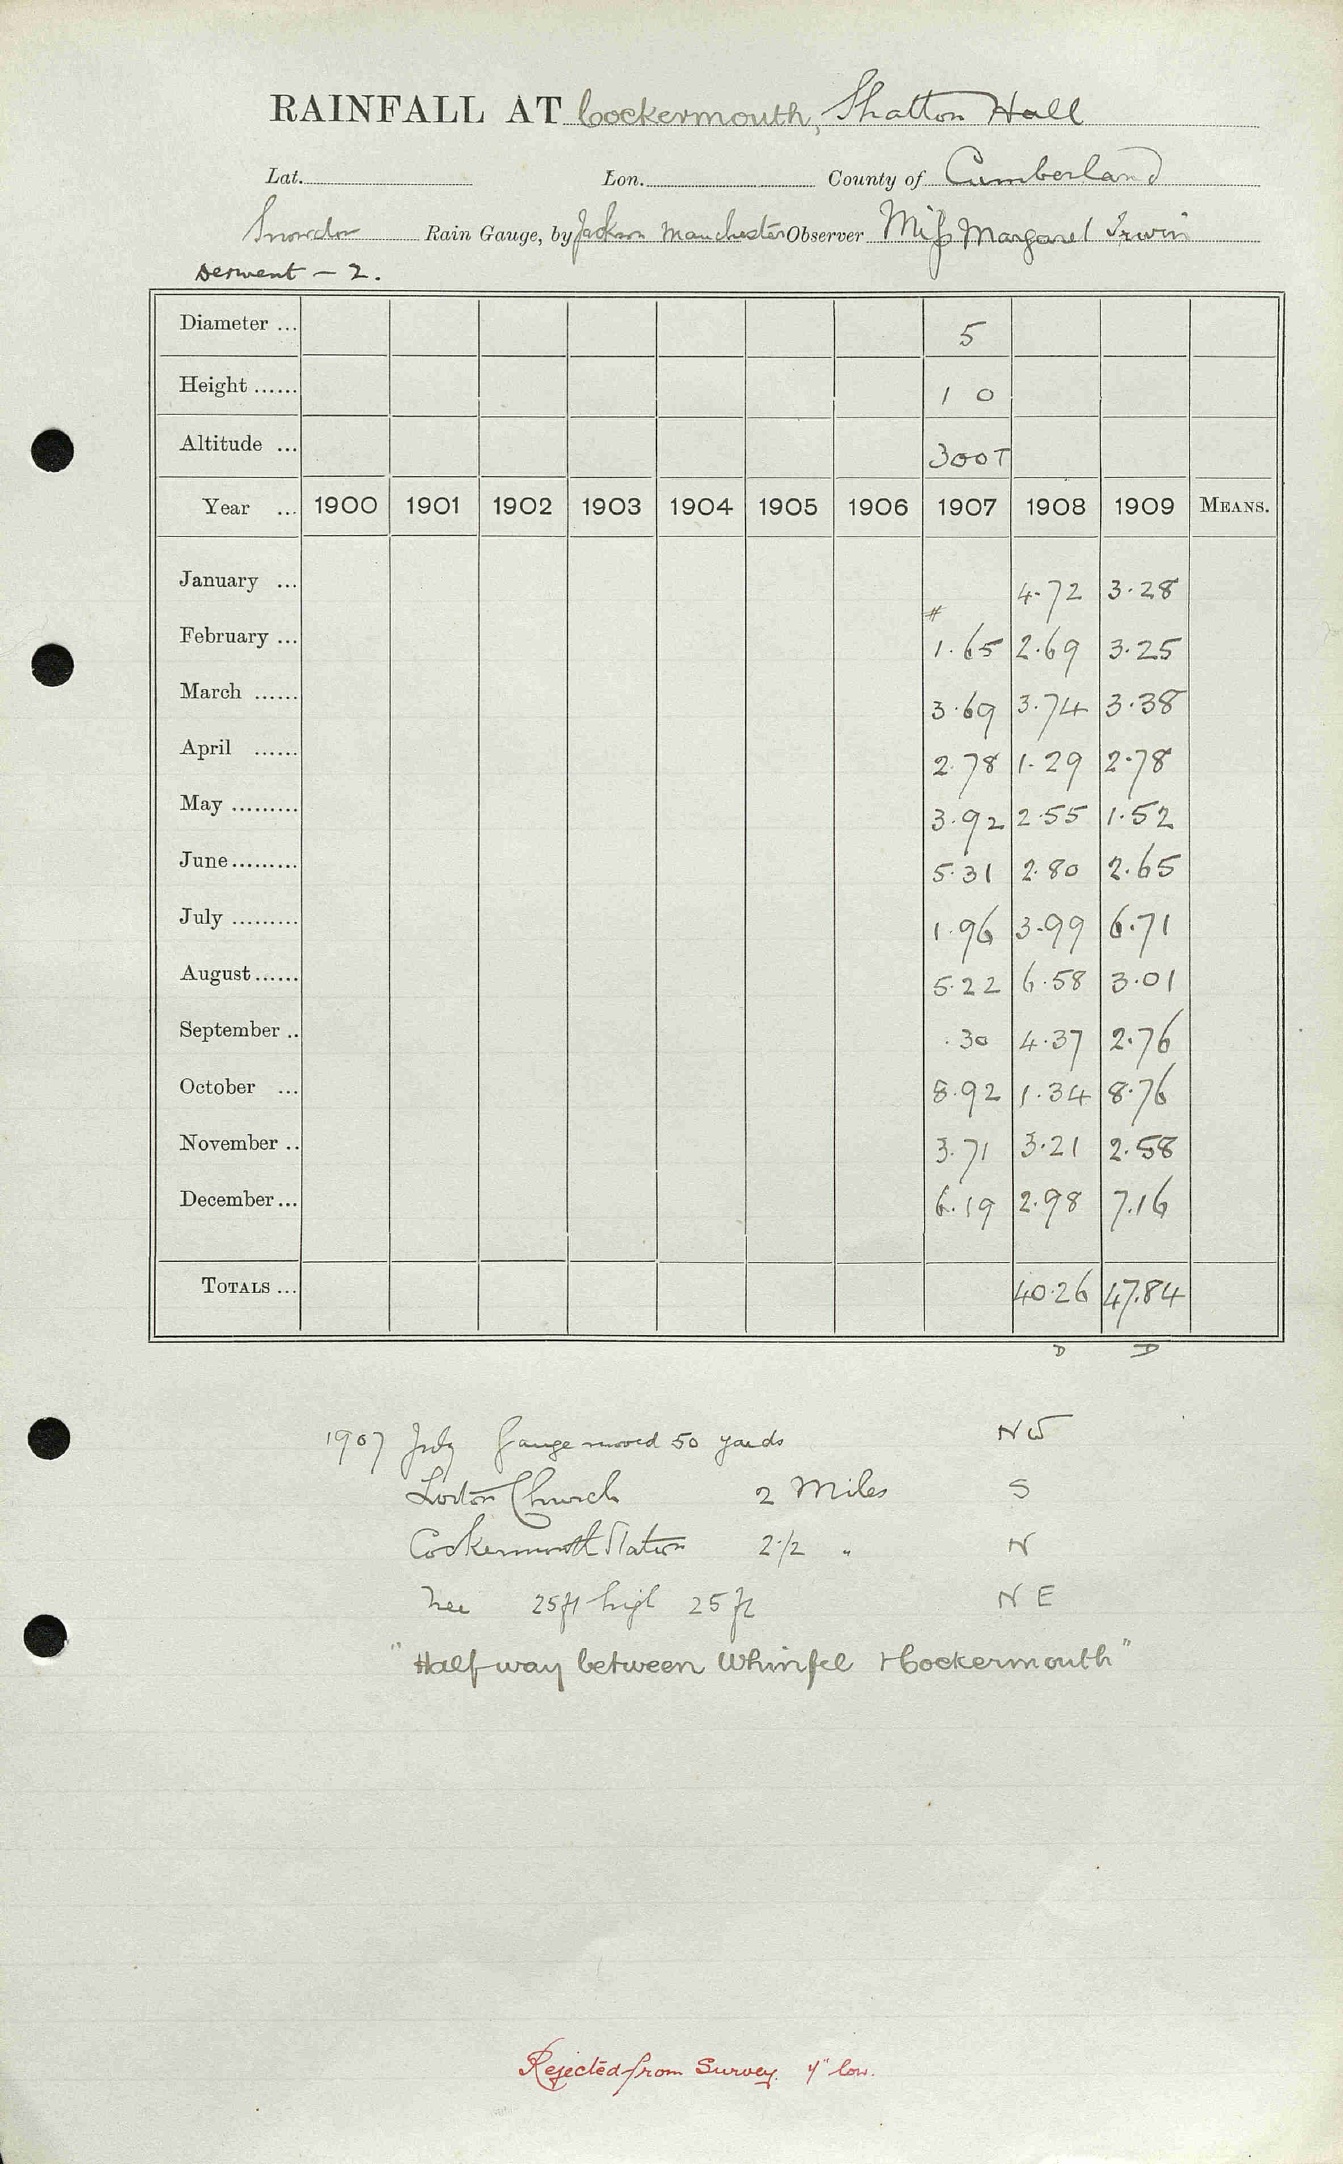 RAINFALL AT Cockermouth, Shatton Hall
Lat. Lon. County of Cumberland
Snowdon Rain Gauge, by Jackson Manchester Observer Miss Margaret Irwin
Derwent - 2.
Diameter ... 5
Height ...... 1 0
Altitude ... 300T
Year ... 1900 1901 1902 1903 1904 1905 1906 1907 1908 1909 MEANS.
January ... 4.72 3.28
#
February ... 1.65 2.69 3.25
March ...... 3.69 3.74 3.38
April ...... 2.78 1.29 2.78
May ......... 3.92 2.55 1.52
June ......... 5.31 2.80 2.65
July ......... 1.96 3.99 6.71
August ...... 5.22 6.58 3.01
September .. .30 4.37 2.76
October ... 8.92 1.34 8.76
November .. 3.71 3.21 2.58
December ... 6.19 2.98 7.16
TOTALS ... 40.26 47.84
D D
1907 July Gauge moved 50 yards NW
Lorton Church 2 Miles S
Cockermouth Station 2 1/2 " N
Tree 25ft high 25 ft NE
"Half-way between Whinfel & Cockermouth"
Rejected from Survey. 4" low.